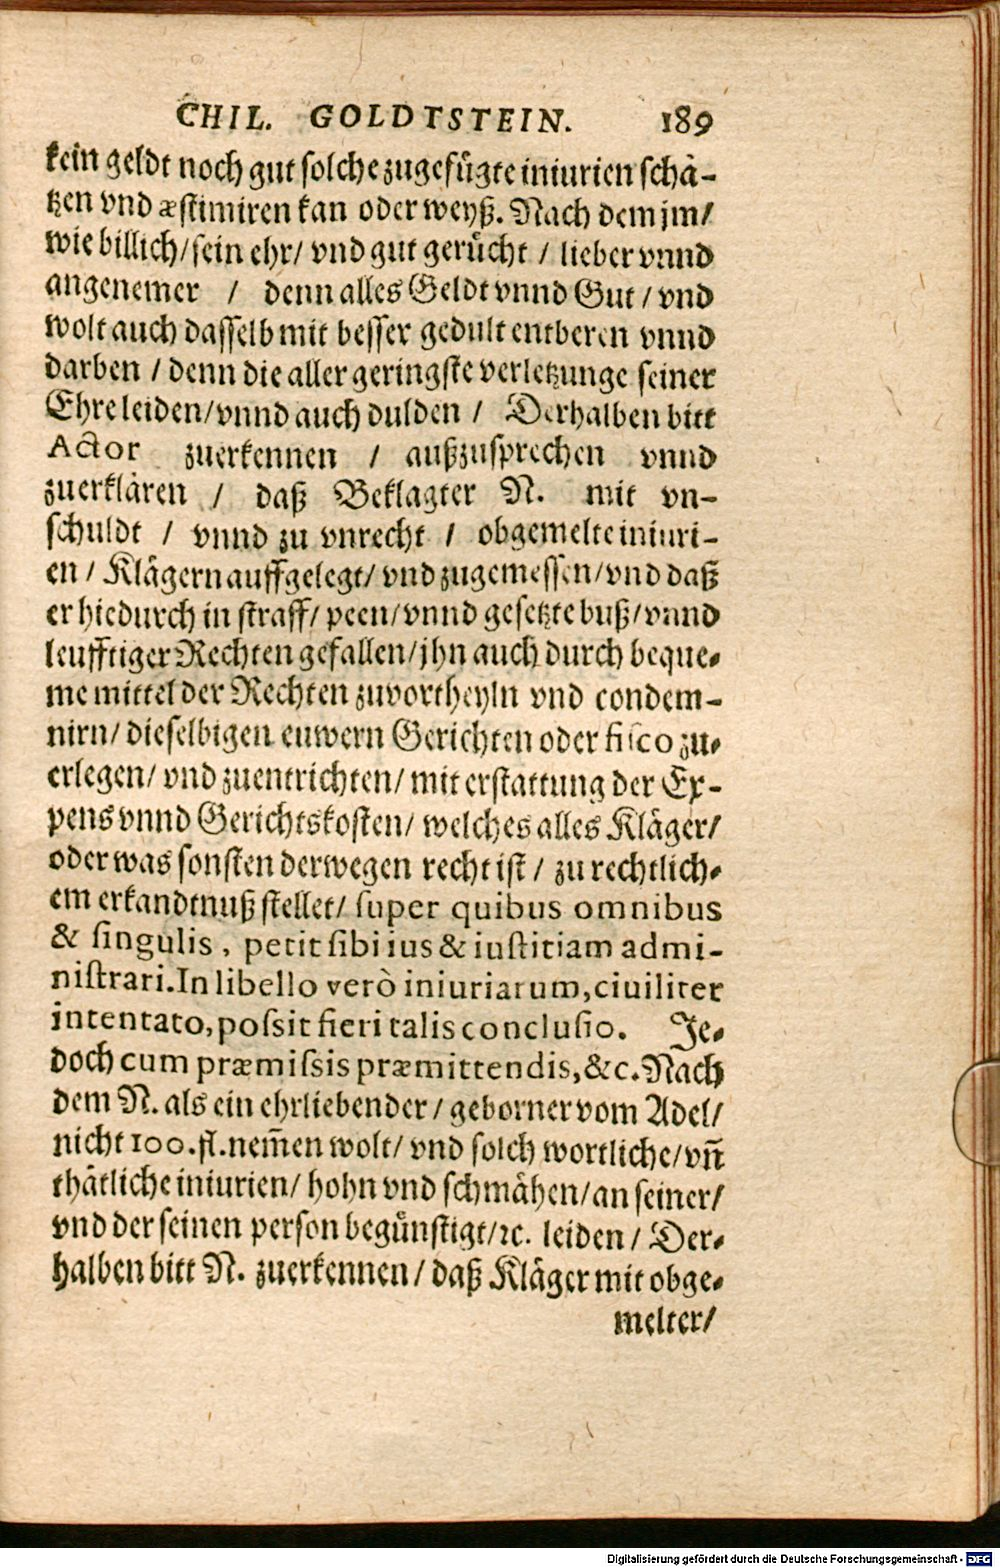 CHIL. GOLDTSTEIN. 189
kein geldt noch gut solche zugefuͤgte iniurien schaͤ-
tzen vnd æstimiren kan oder weyß. Nach dem jm/
wie billich/ sein ehr/ vnd gut geruͤcht / lieber vnnd
angenemer / denn alles Geldt vnnd Gut / vnd
wolt auch dasselb mit besser gedult entberen vnnd
darben / denn die aller geringste verletzunge seiner
Ehre leiden/ vnnd auch dulden / Derhalben bitt
Actor zuerkennen / außzusprechen vnnd
zuerklaͤren / daß Beklagter N. mit vn-
schuldt / vnnd zu vnrecht / obgemelte iniuri-
en / Klaͤgern auffgelegt/ vnd zugemessen/ vnd daß
er hiedurch in straff/ peen/ vnnd gesetzte buß/ vnnd
leufftiger Rechten gefallen/ jhn auch durch beque-
me mittel der Rechten zuvortheyln vnd condem-
nirn/ dieselbigen euwern Gerichten oder fisco zu-
erlegen/ vnd zuentrichten/ mit erstattung der Ex-
pens vnnd Gerichtskosten/ welches alles Klaͤger/
oder was sonsten derwegen recht ist / zu rechtlich-
em erkandtnuß stellet/ ſuper quibus omnibus
& ſingulis, petit ſibi ius & iuſtitiam admi-
niſtrari. In libello verò iniuriarum, ciuiliter
intentato, poſsit fieri talis concluſio. Je-
doch cum præmiſsis præmittendis, &c. Nach
dem N. als ein ehrliebender / geborner vom Adel/
nicht 100. fl. nem̃en wolt/ vnd solch wortliche/ vñ
thaͤtliche iniurien/ hohn vnd schmaͤhen/ an seiner/
vnd der seinen person beguͤnstigt/ ꝛc. leiden / Der-
halben bitt N. zuerkennen / daß Klaͤger mit obge-
melter/
Digitalisierung gefördert durch die Deutsche Forschungsgemeinschaft - DFG